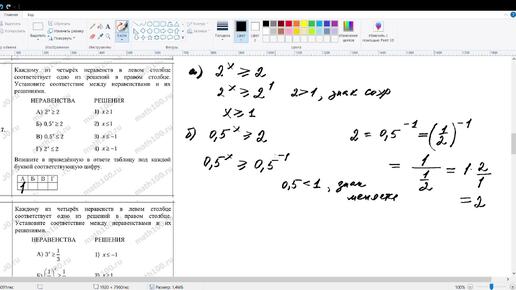 Каждому из четырёх неравенств в левом столбце
соответствует одно из решений в правом столбце.
Установите соответствие между неравенствами и их
решениями.
НЕРАВЕНСТВА РЕШЕНИЯ
А) 2ˣ ≥ 2 1) x ≥ 1
Б) 0,5ˣ ≥ 2 2) x ≤ 1
В) 0,5ˣ ≤ 2 3) x ≤ −1
Г) 2ˣ ≤ 2 4) x ≥ −1
Впишите в приведённую в ответе таблицу под каждой
буквой соответствующую цифру.
А Б В Г
1
Каждому из четырёх неравенств в левом столбце
соответствует одно из решений в правом столбце.
Установите соответствие между неравенствами и их
решениями.
НЕРАВЕНСТВА РЕШЕНИЯ
А) 3ˣ ≥ 1/3 1) x ≤ −1
а) 2ˣ ≥ 2
2ˣ ≥ 2¹ 2>1, знак сохр
x ≥ 1
б) 0,5ˣ ≥ 2 2 = 0,5⁻¹ = (1/2)⁻¹
0,5ˣ ≥ 0,5⁻¹ = 1/(1/2) = 1·2/1
0,5<1, знак
меняется = 2
math100.ru